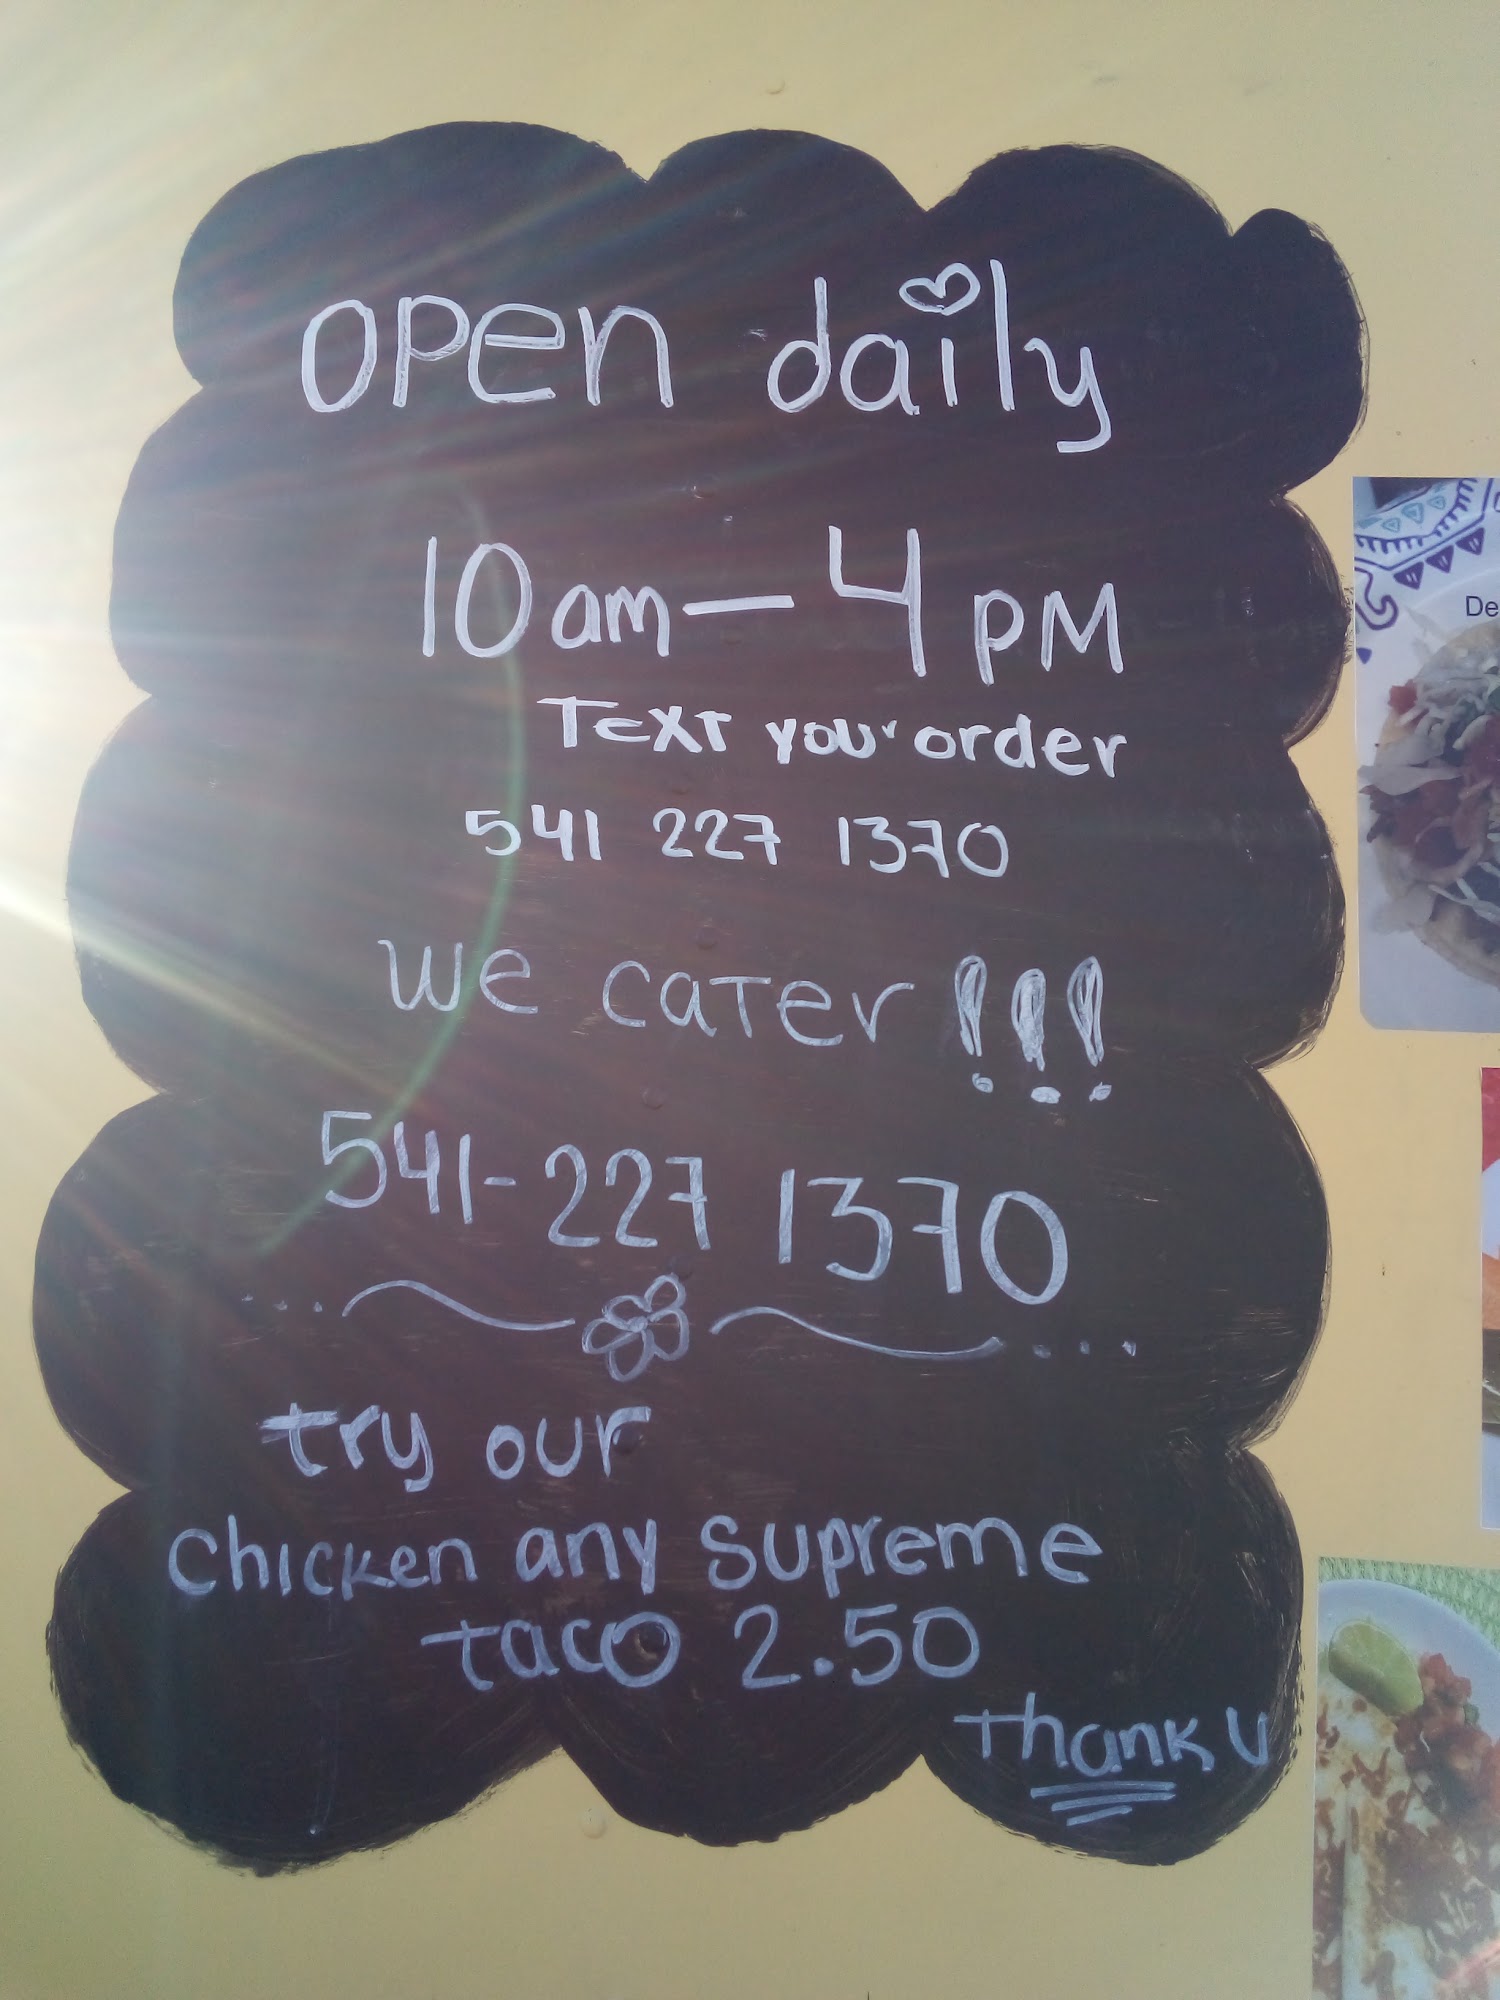 open daily
10am—4pM
TEXT your order
541 227 1370
We cater!!!
541-227 1370
try our
chicken any supreme
taco 2.50
Thank U
De